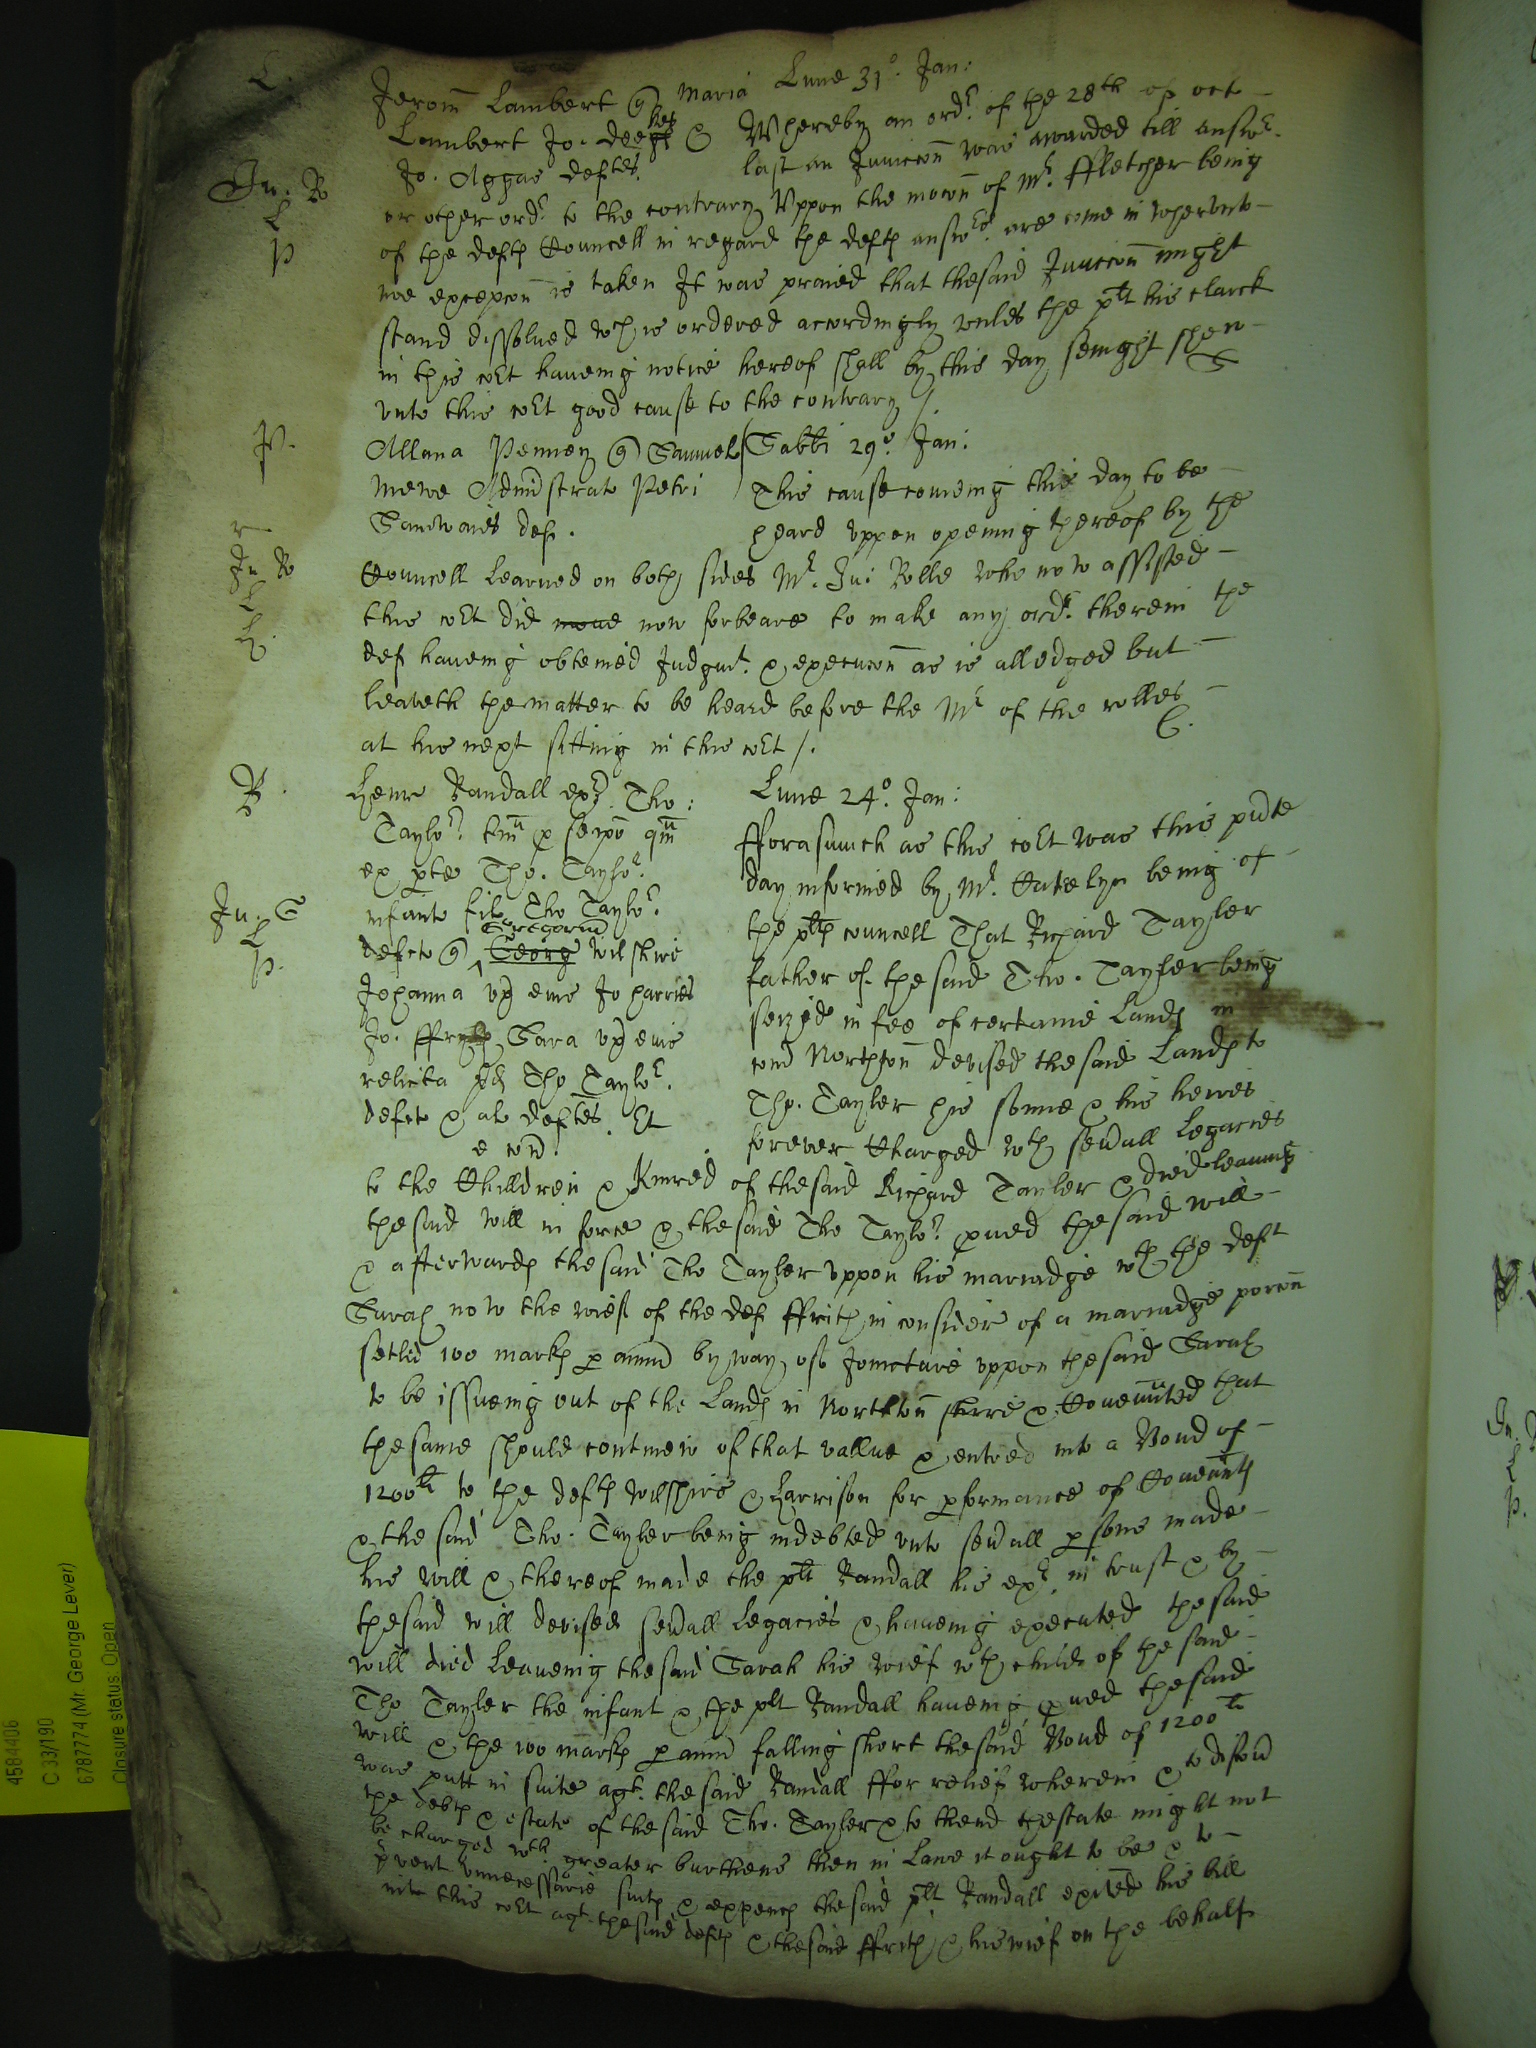 L.
Jerom Lambert q Maria Lune 31o. Jan:
Lambert Jo. & Whereby an ordr. of the 28th of oct
Jo. Aggas deftes. last an Iniuccon was awarded till answr.
Ju. R
or other ordr to the contrary Vppon the mocon of Mr. ffletcher being
L
of the deftes Councell in regard the deftes answrs. are come in whervnto
P
noe excepcon is taken It was praied that the said Iniuccon might
stand dissolued wch is ordered accordingly vnles the plt his clarck
in this cort haueing notice hereof shall by this day senight shew
vnto this cort good cause to the contrary /
P.
Allana Penney q Samuel Sabbi 29o. Jan:
Mewe Administrato Petri This cause comeing this day to be
def. heard vppon opening thereof by the
r
Ju R
Councell learned on both sides Mr. Ju: Rolle who now assisted
L
this cort did moue now forbeare to make any ordr. therein the
H.
def haueing obteined Iudgmt. & execucon as is alledged but
leaueth the matter to be heard before the Mr of the rolles
at his next sitting in this cort /.
R
Henr Randall exr Tho: Lune 24o. Jan:
Taylor. tm p seipo qm fforasmuch as this cort was this pnte
ex pte Tho. Taylor. day informed by Mr. being of
Ju. S
infants fil Tho Taylor. the pltes councell That Richard Tayler
L
defct q Georg Gregorin Wilshire father of the said Tho. Tayler being
P.
Johanna vx eius Jo harries seized in fee of certaine Lands in
Jo. ffryth Sara vx eius com Northton devised the said Lands to
relicta Tho Taylor. Tho. Tayler his sonne & his heires
defct & al deftes. Et forever Charged wth seuall Legacies
e con
to the Chilldren & Kinred of the said Richard Tayler & died leaueing
the said will in force & the said Tho Taylor pued the said will
& afterwards the said Tho Tayler vppon his marriadge wth the deft
Sarah now the wief of the def ffrith in consider of a marriadge porcon
setled 100 marks p annu by way of Joincture vppon the said Sarah
to be issueing out of the Lands in Northton shire & Couennted that
the same should contineiw of that vallue & entred into a Bond of
1200li to the deftes Wilshire & Harrison for pformance of Couennts
& the said Tho. Tayler being indebted vnto seuall psons made
his will & thereof made the plt Randall his exr. in trust & by
the said will devised seuall Legacies & haueing executed the said
will died Leaueing the said Sarah his wief wth child of the said
Tho Tayler the infant & the plt Randall haueing pued the said
will & the 100 marks p annu falling short the said Bond of 1200li
was putt in suite agt. the said Randall ffor relief wherein & to discou
the debts & estate of the said Tho. Tayler & to thend thestate might not
be charged wth greater burthens then in Lawe it ought to be & to
pvent vnnecessarie suits & expences the said plt Randall exited his bill
into this cort agt. the said deftes & the said ffrith & his wief on the behalf
4584406
C 33/190
6787774 (Mr. George Lever)
Closure status: Open